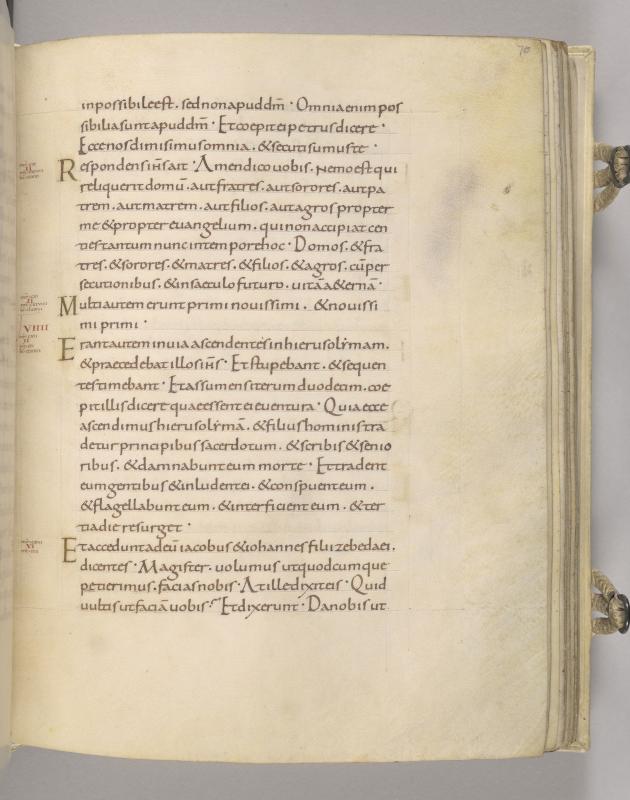 70
inpossibile est. sed non apud dm̄ · Omnia enim pos
sibilia sunt apud dm̄ · Et coepit ei petrus dicere ·
Ecce nos dimisimus omnia. & secuti sumus te ·
Respondens ih̄s ait · Amen dico uobis. Nemo est qui
reliquerit domū. aut fratres. aut sorores. aut pa
trem. aut matrem. aut filios. aut agros propter
me & propter euangelium. qui non accipiat cen
ties tantum nunc in tempore hoc · Domos. & fra
tres. & sorores. & matres. & filios. & agros. cū per
secutionibus. & in saeculo futuro. uitā aeternā ·
Multi autem erunt primi nouissimi. & nouissi
mi primi ·
VIIII
Erant autem in uia ascendentes in hierusolymam.
& praecedebat illos ih̄s · Et stupebant. & sequen
tes timebant · Et assumens iterum duodecim. coe
pit illis dicere quae essent ei euentura · Quia ecce
ascendimus hierusolymā. & filius hominis tra
detur principibus sacerdotum. & scribis & senio
ribus. & damnabunt eum morte · Et tradent
eum gentibus & inludent ei. & conspuent eum.
& flagellabunt eum. & interficient eum. & ter
tia die resurget ·
Et accedunt ad eū iacobus & iohannes filii zebedaei.
dicentes · Magister. uolumus ut quodcumque
petierimus. facias nobis · At ille dixit eis · Quid
uultis ut faciā uobis? Et dixerunt · Da nobis ut